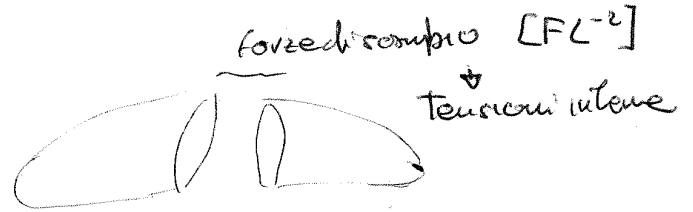 forze di scambio [FL⁻²]
↓
Tensioni interne